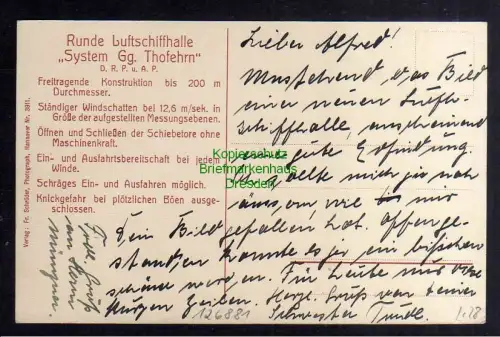 Runde Luftschiffhalle
„System Gg. Thofehrn"
D. R. P. u. A. P.
Freitragende Konstruktion bis 200 m
Durchmesser.
Ständiger Windschatten bei 12,6 m/sek. in
Größe der aufgestellten Messungsebenen.
Öffnen und Schließen der Schiebetore ohne
Maschinenkraft.
Ein- und Ausfahrtsbereitschaft bei jedem
Winde.
Schräges Ein- und Ausfahren möglich.
Knickgefahr bei plötzlichen Böen ausge-
schlossen.
Verlag: Fr. Schröder, Photograph, Hannover Nr. 3911.
Lieber Alfred!
Umstehend das Bild
einer neuen Luft-
schiffhalle, anscheinend
eine gute Erfindung.
sollte mich ja
viel
Dein Bild gefallen hat. Offen ge-
standen könnte es ja ein bißchen
schöne werden. Für heute nur diese
kurzen Zeilen. Herzl. Gruß von Deiner
Schwester Trudl.
Kopierschutz
Briefmarkenhaus
Dresden
126881